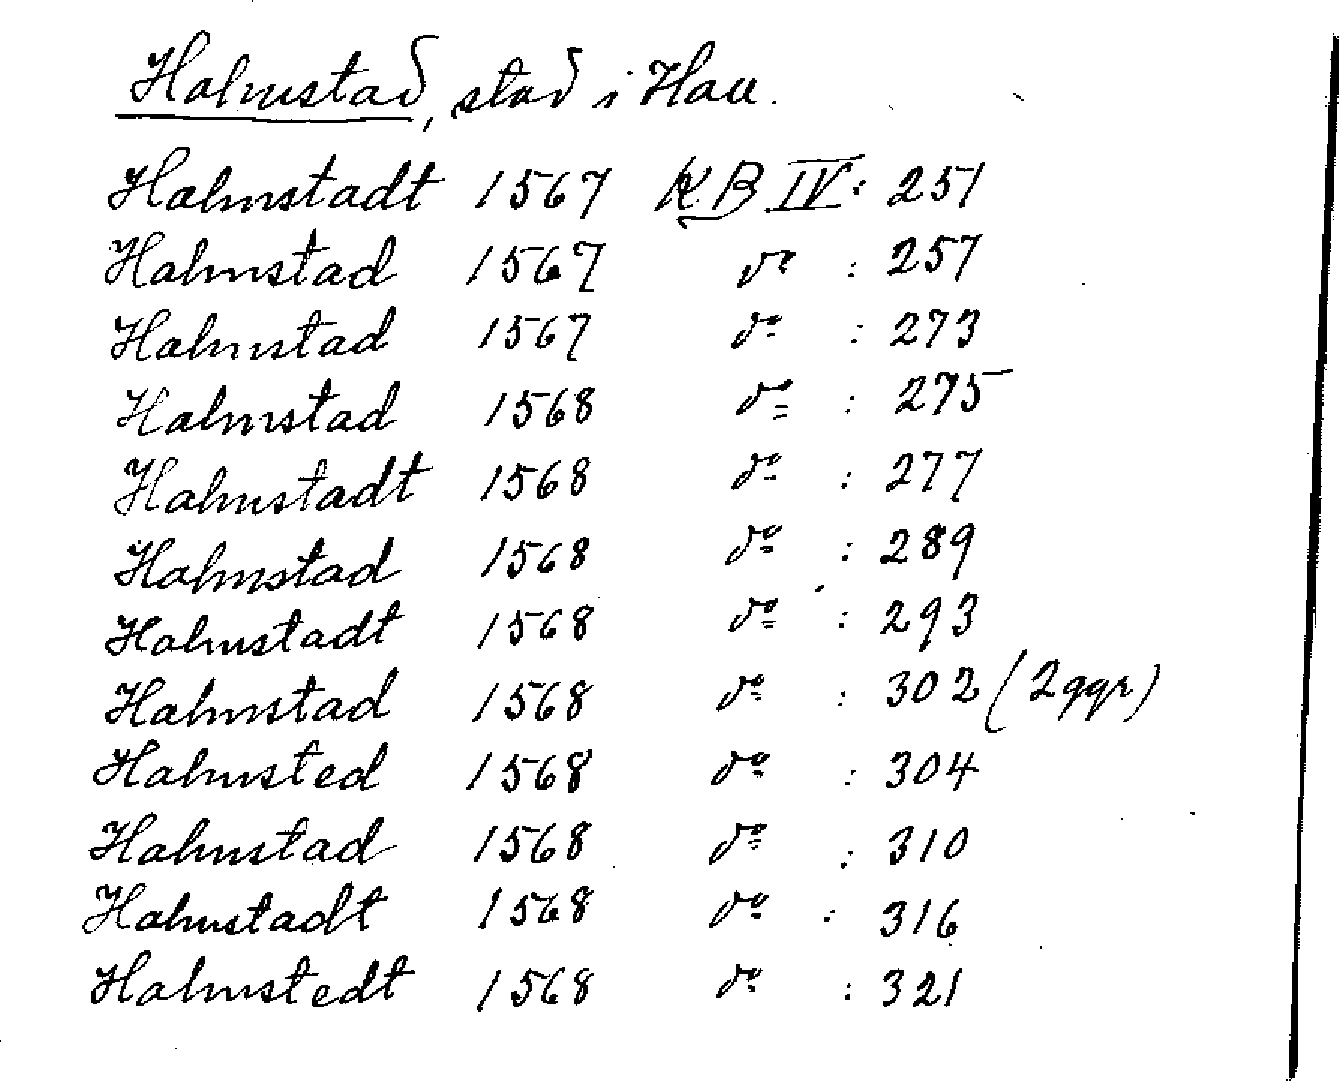 Halmstad, stad i Hall.
Halmstadt 1567 KB IV: 251
Halmstad 1567 do : 257
Halmstad 1567 do : 273
Halmstad 1568 do : 275
Halmstadt 1568 do : 277
Halmstad 1568 do : 289
Halmstadt 1568 do : 293
Halmstad 1568 do : 302 (2 ggr)
Halmsted 1568 do : 304
Halmstad 1568 do : 310
Halmstadt 1568 do : 316
Halmstedt 1568 do : 321